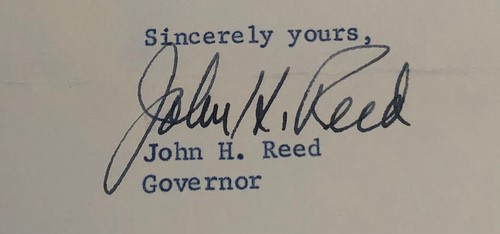 Sincerely yours,
John H. Reed
John H. Reed
Governor